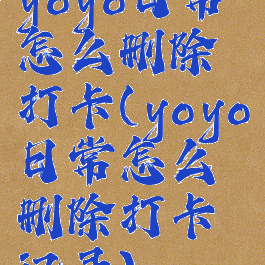 yoyo日常
怎么删除
打卡(yoyo
日常怎么
删除打卡
记录)